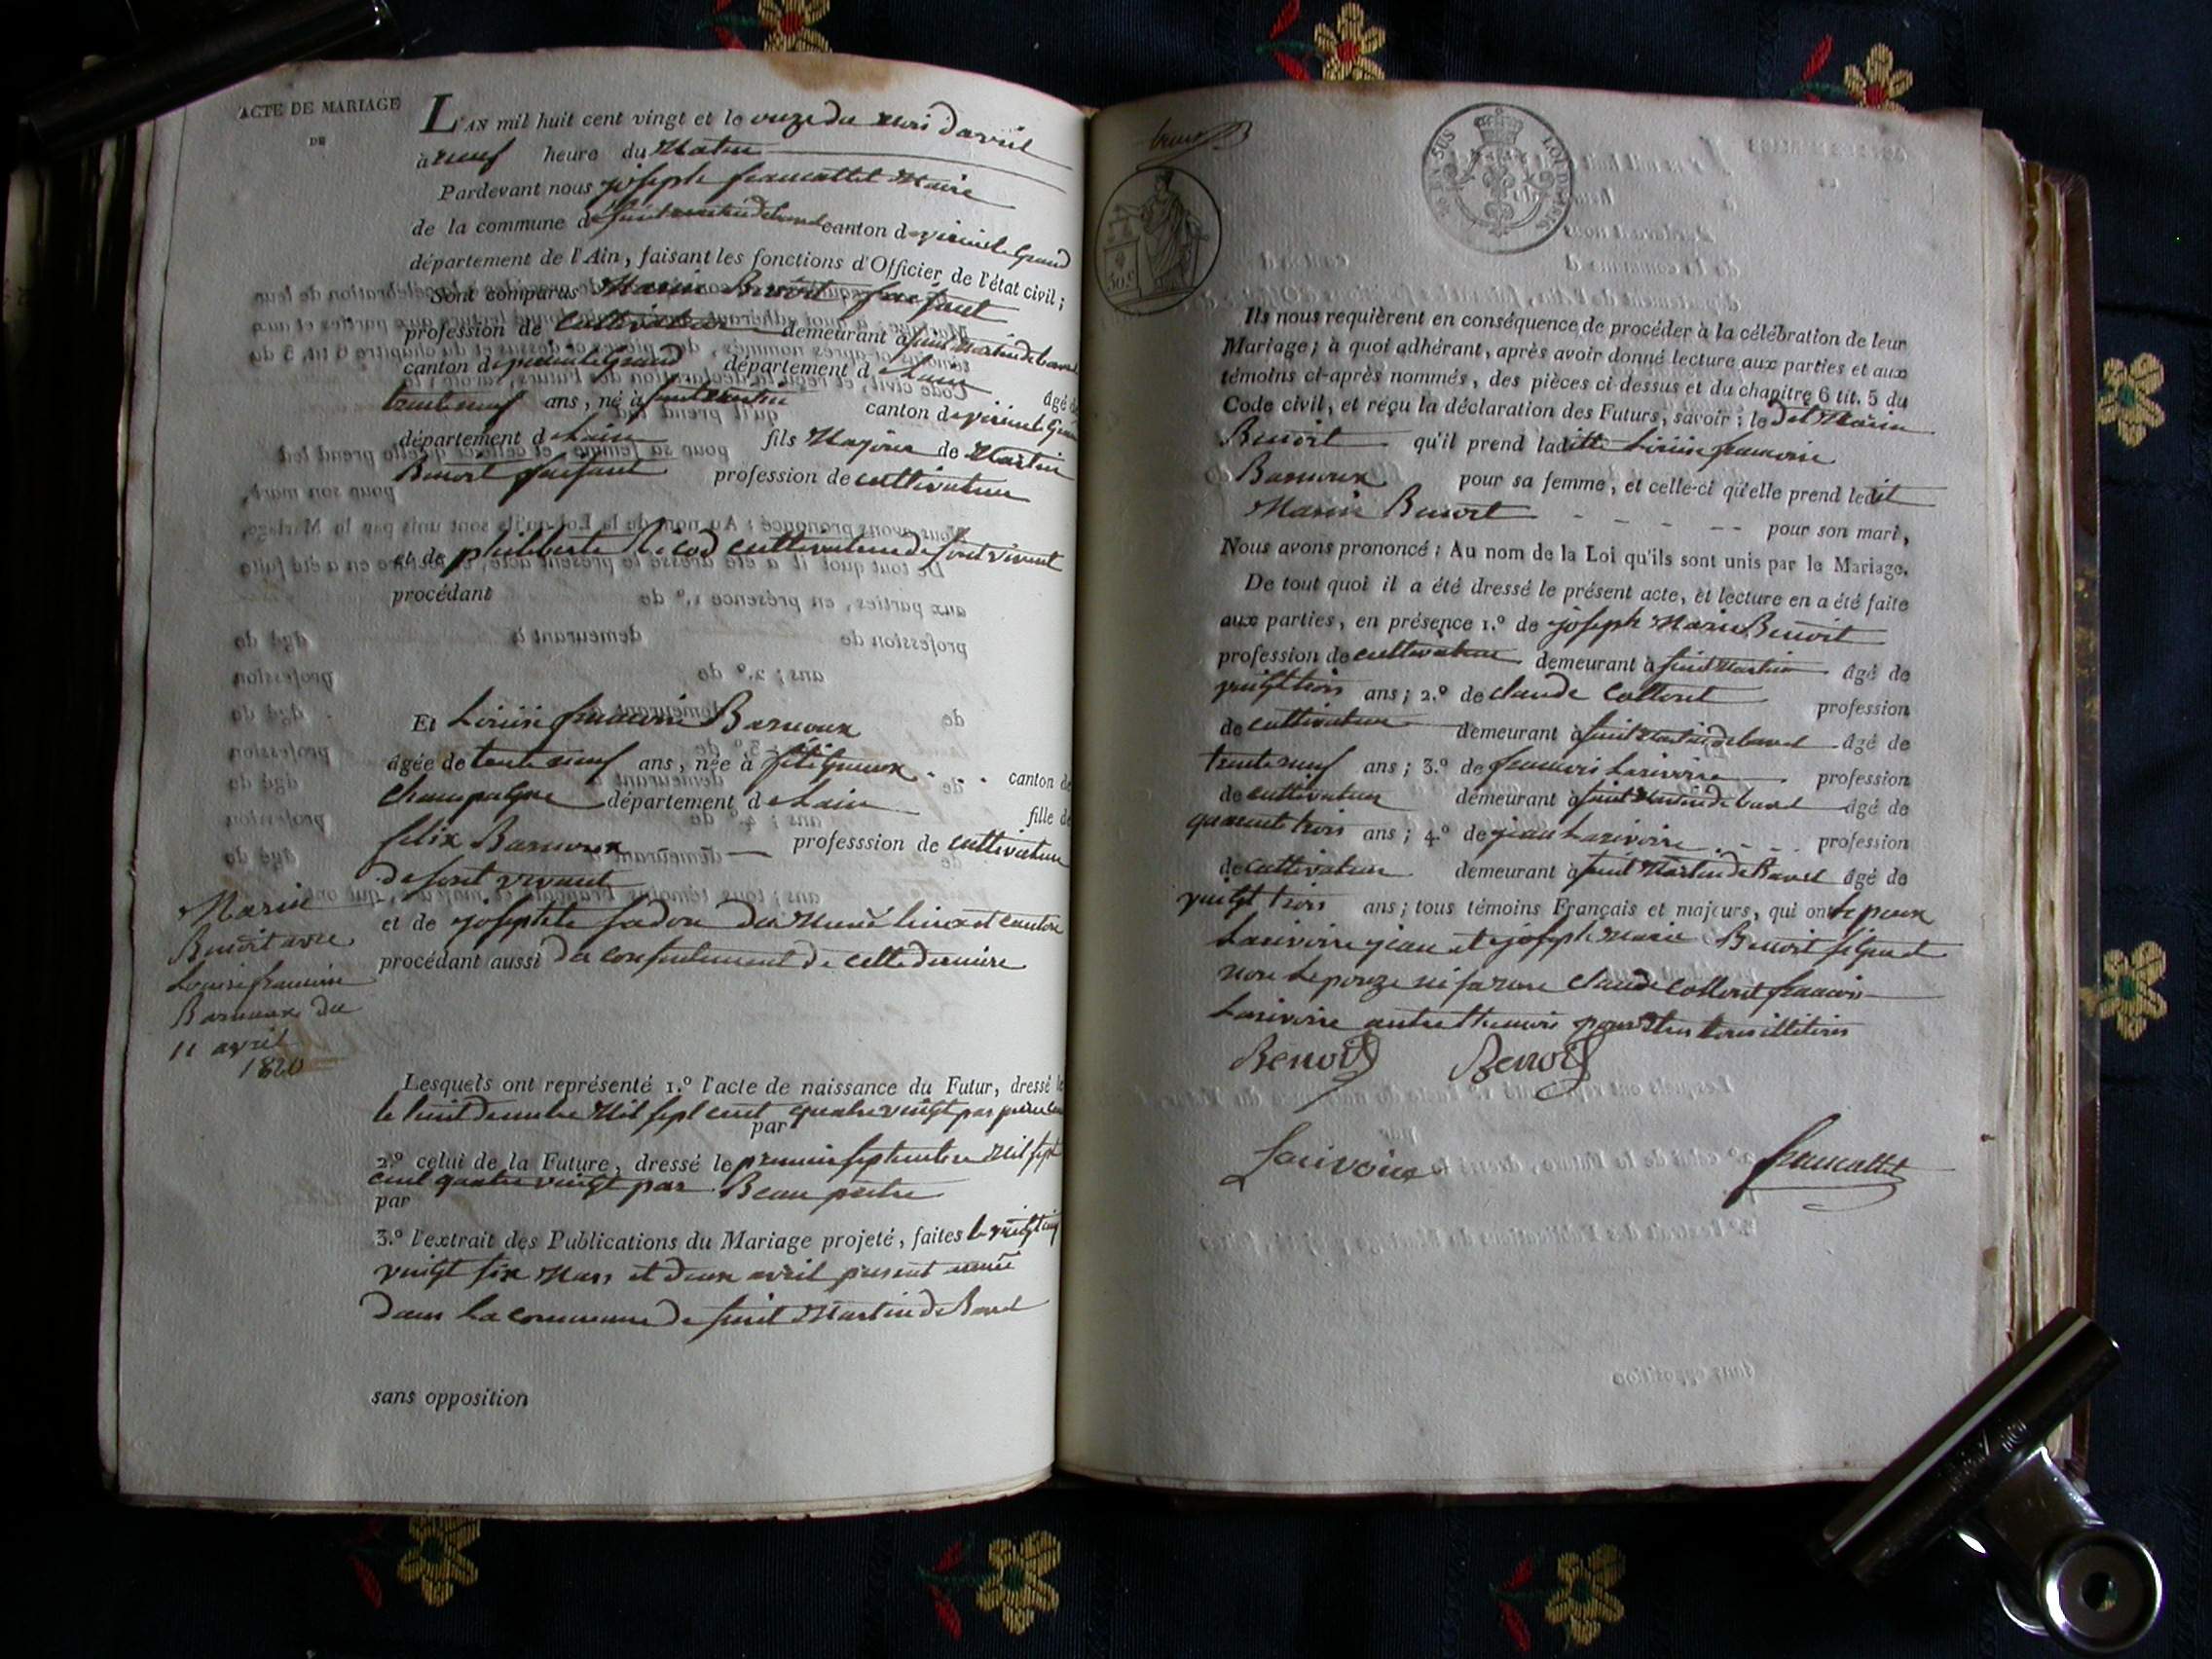 ACTE DE MARIAGE
DE
L'AN mil huit cent vingt et le onze du mois davril
à neuf heure du Matin
Pardevant nous joseph francallet Maire
de la commune de saint martin de bavel canton de virieu le Grand
département de l'Ain, faisant les fonctions d'Officier de l'état civil;
Sont comparus Marin Benoit,
profession de Cultivateur demeurant à saint Martin de bavel
canton de virieu le Grand département de Lain âgé de
trente neuf ans, né à saint martin canton de virieu le Grand
département de Lain fils Majeur de Martin
Benoit profession de cultivateur
et de philiberte cultivateur de son vivant
procédant
Et Louise francoise Barnoux
âgée de trente neuf ans, née à canton de
champagne département de Lain fille de
felix Barnoux professsion de cultivateur
de sont vivant
et de josephte du canton
procédant aussi du consentement de cette derniere
Marin
Benoit avec
Louise francoise
Barnoux du
11 avril
1820
Lesquels ont représenté 1.º l'acte de naissance du Futur, dressé le
le huit Mil sept cent quatre vingt par
par
2.º celui de la Future, dressé le premier septembre Mil sept
cent quatre vingt par Beau
par
3.º l'extrait des Publications du Mariage projeté, faites le
vingt six Mars et deux avril present année
dans la commune de saint Martin de Bavel
sans opposition
Ils nous requièrent en conséquence de procéder à la célébration de leur
Mariage; à quoi adhérant, après avoir donné lecture aux parties et aux
témoins ci-après nommés, des pièces ci-dessus et du chapitre 6 tit. 5 du
Code civil, et reçu la déclaration des Futurs, savoir: le dit Marin
Benoit qu'il prend laditte Louise francoise
Barnoux pour sa femme, et celle-ci qu'elle prend ledit
Marin Benoit pour son mari,
Nous avons prononcé: Au nom de la Loi qu'ils sont unis par le Mariage.
De tout quoi il a été dressé le présent acte, et lecture en a été faite
aux parties, en présence 1.º de joseph Marie Benoit
profession de cultivateur demeurant à saint Martin âgé de
vingt trois ans; 2.º de claude Collont profession
de cultivateur demeurant à saint Martin de bavel âgé de
trente neuf ans; 3.º de francois Larivoire profession
de cultivateur demeurant à saint Martin de bavel âgé de
quarente trois ans; 4.º de jean Larivoire profession
de cultivateur demeurant à saint Martin de Bavel âgé de
vingt trois ans; tous témoins Français et majeurs, qui ont
Larivoire jean et joseph marie Benoit signé et
non claude Collont francois
Larivoire autre pour etre tous illitéres
Benoit Benoit
Larivoire francallet